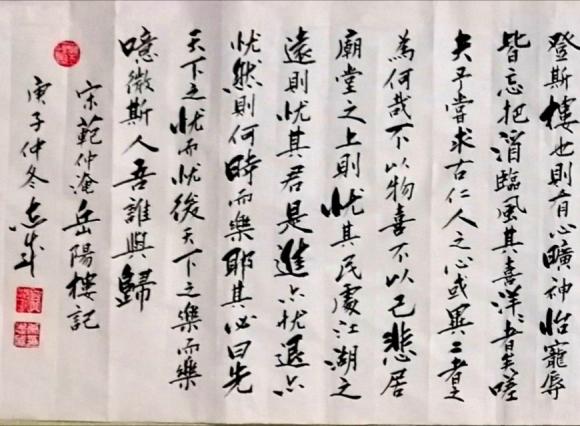 登斯樓也則有心曠神怡寵辱
皆忘把酒臨風其喜洋洋者矣嗟
夫予嘗求古仁人之心或異二者之
為何哉不以物喜不以己悲居
廟堂之上則忧其民處江湖之
遠則忧其君是進亦忧退亦
忧然則何時而樂耶其必曰先
天下之忧而忧後天下之樂而樂
噫微斯人吾誰與歸
宋範仲淹岳陽樓記
庚子仲冬志成